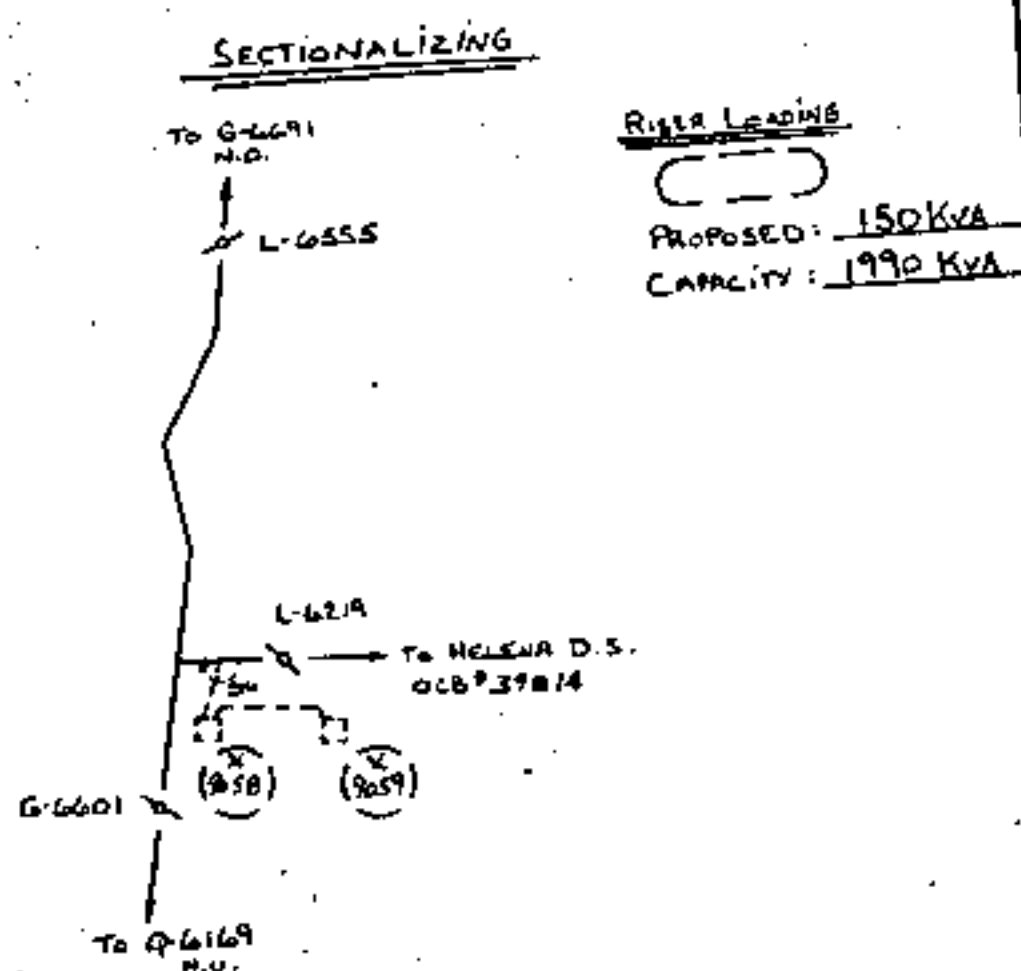 SECTIONALIZING
To G-6691
N.O.
L-6555
RISER LOADING
PROPOSED: 150 KVA
CAPACITY: 1990 KVA
L-6219
To HELENA D.S.
OCB#
X
(9058)
X
(9059)
G-6601
To Q-6169
N.O.